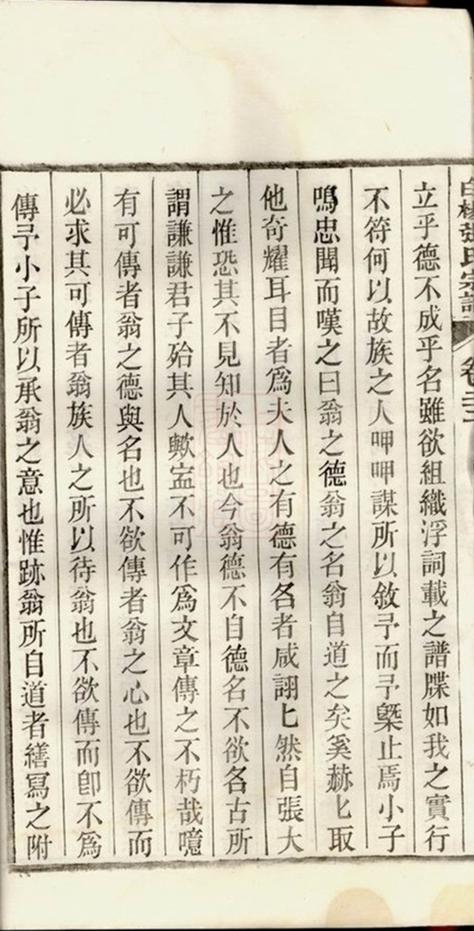 張氏宗譜 卷
立乎德不成乎名雖欲組織浮詞載之譜牒如我之實行
不符何以故族之人呷呷謀所以敘予而予槩止焉小子
鳴忠聞而嘆之曰翁之德翁之名翁自道之矣奚赫匕取
他奇耀耳目者爲夫人之有德有名者咸詡匕然自張大
之惟恐其不見知於人也今翁德不自德名不欲名古所
謂謙謙君子殆其人歟盍不可作爲文章傳之不朽哉噫
有可傳者翁之德與名也不欲傳者翁之心也不欲傳而
必求其可傳者翁族人之所以待翁也不欲傳而卽不爲
傳予小子所以承翁之意也惟跡翁所自道者繕寫之附